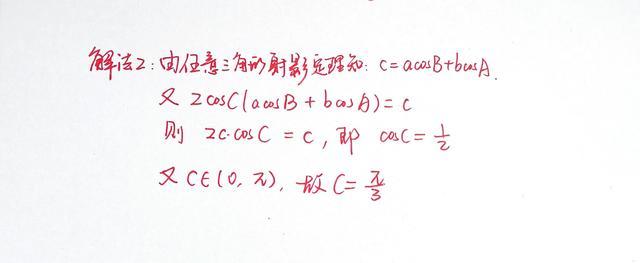 解法2:由任意三角形射影定理知:c=acosB+bcosA.
又 2cosC(acosB+bcosA)=c
则 2c·cosC=c,即 cosC=1/2
又 C∈(0,π),故 C=π/3